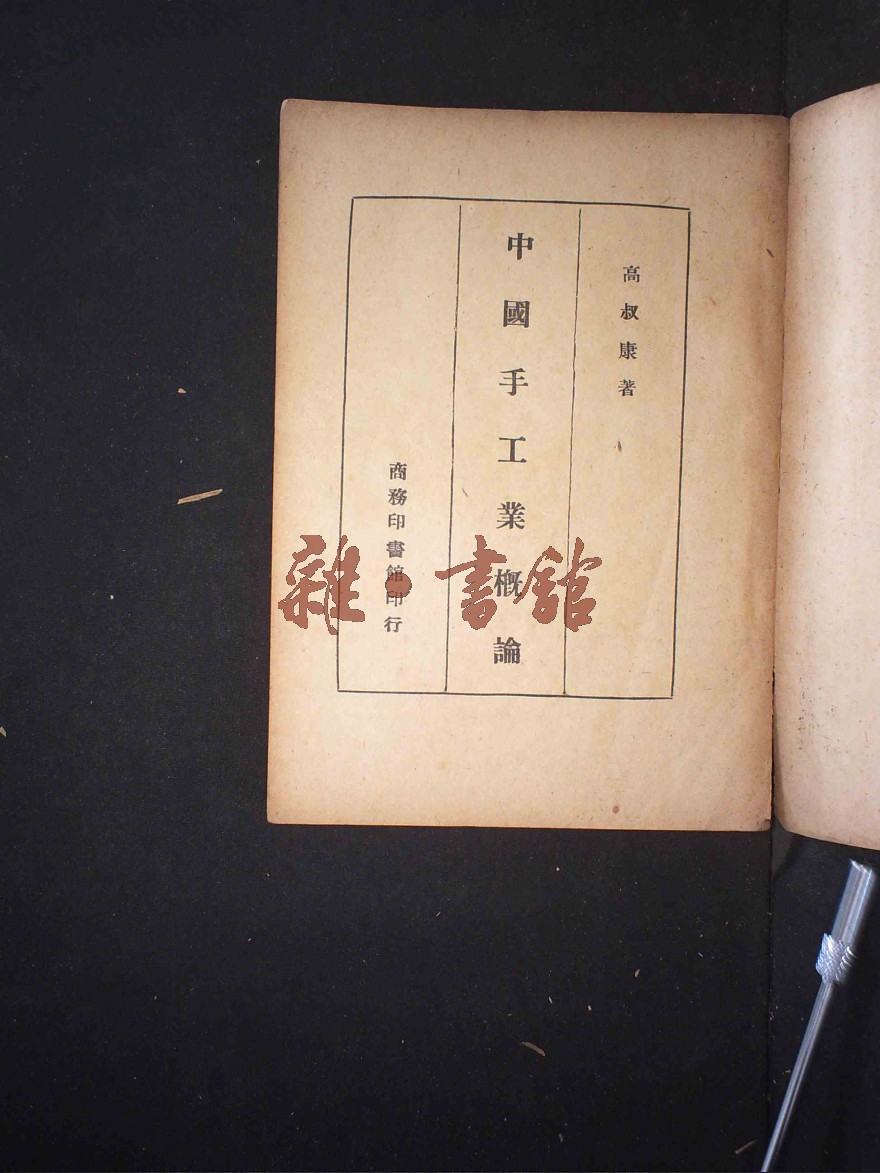 高叔康著
中國手工業概論
商務印書館印行
雜·書館